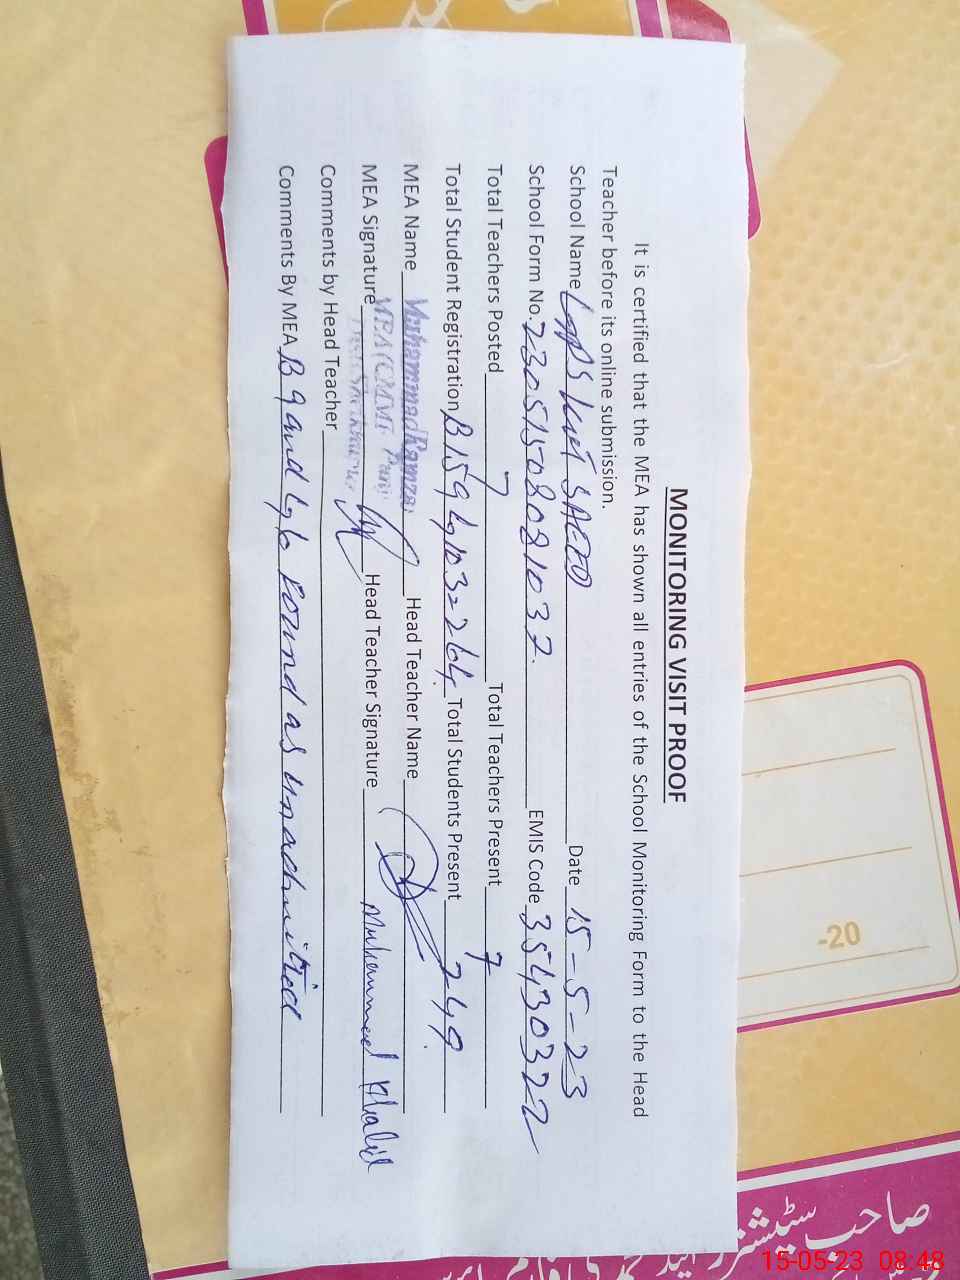 MONITORING VISIT PROOF
It is certified that the MEA has shown all entries of the School Monitoring Form to the Head
Teacher before its online submission.
School Name GPS KOT SAEED Date 15-5-23
School Form No. 23051508081037. EMIS Code 35430322
Total Teachers Posted 7 Total Teachers Present 7
Total Student Registration B159 G103=264 Total Students Present 249.
MEA Name Muhammad Ramzan Head Teacher Name
MEA Signature MEA (CMMF Punj) Head Teacher Signature Muhammad Khalid
Comments by Head Teacher
Comments By MEA B9 and G6 Found as unadmitted
-20
صاحب سٹیشنرز اینڈ
15-05-23 08:48